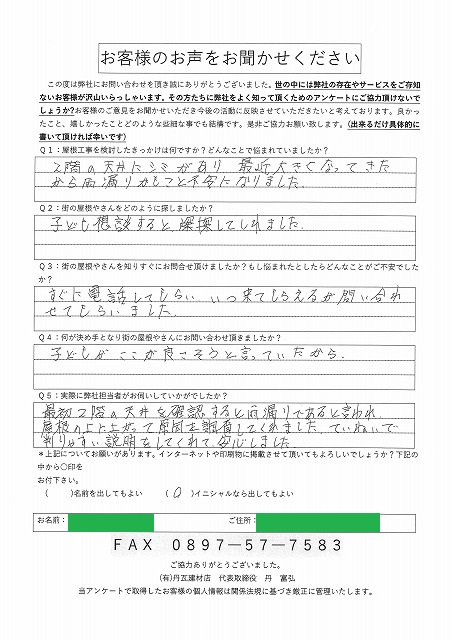 お客様のお声をお聞かせください
この度は弊社にお問い合わせを頂き誠にありがとうございました。世の中には弊社の存在やサービスをご存知
ないお客様が沢山いらっしゃいます。その方たちに弊社をよく知って頂くためのアンケートにご協力頂けないで
しょうか?お客様のご意見をお聞かせいただき今後の活動に反映させていただきたいと考えております。良かっ
たこと、嬉しかったことどのような些細な事でも結構です。是非ご協力お願い致します。(出来るだけ具体的に
書いて頂ければ幸いです)
Q1:屋根工事を検討したきっかけは何ですか?どんなことで悩まれていましたか?
2階の天井にシミがあり 最近大きくなってきた
から雨漏りかもと不安になりました。
Q2:街の屋根やさんをどのように探しましたか?
子ども相談すると探してくれました。
Q3:街の屋根やさんを知りすぐにお問合せ頂けましたか?もし悩まれたとしたらどんなことがご不安でした
か?
すぐに電話してもらい、いつ来てもらえるか問い合わ
せてもらいました。
Q4:何が決め手となり街の屋根やさんにお問い合わせ頂きましたか?
子どもがここが良さそうと言っていたから。
Q5:実際に弊社担当者がお伺いしていかがでしたか?
最初2階の天井を確認すると雨漏りであると言われ、
屋根の上に上がって原因を調査してくれました。ていねいで
判りやすい説明をしてくれて、安心しました
*上記についてお願いがあります。インターネットや印刷物に掲載させて頂いてもよろしいでしょうか?下記の
中から〇印を
お付下さい。
( )名前を出してもよい (〇)イニシャルなら出してもよい
お名前: ご住所:
FAX 0897-57-7583
ご協力ありがとうございました。
(有)丹瓦建材店 代表取締役 丹 富弘
当アンケートで取得したお客様の個人情報は関係法規に基づき厳正に管理いたします。